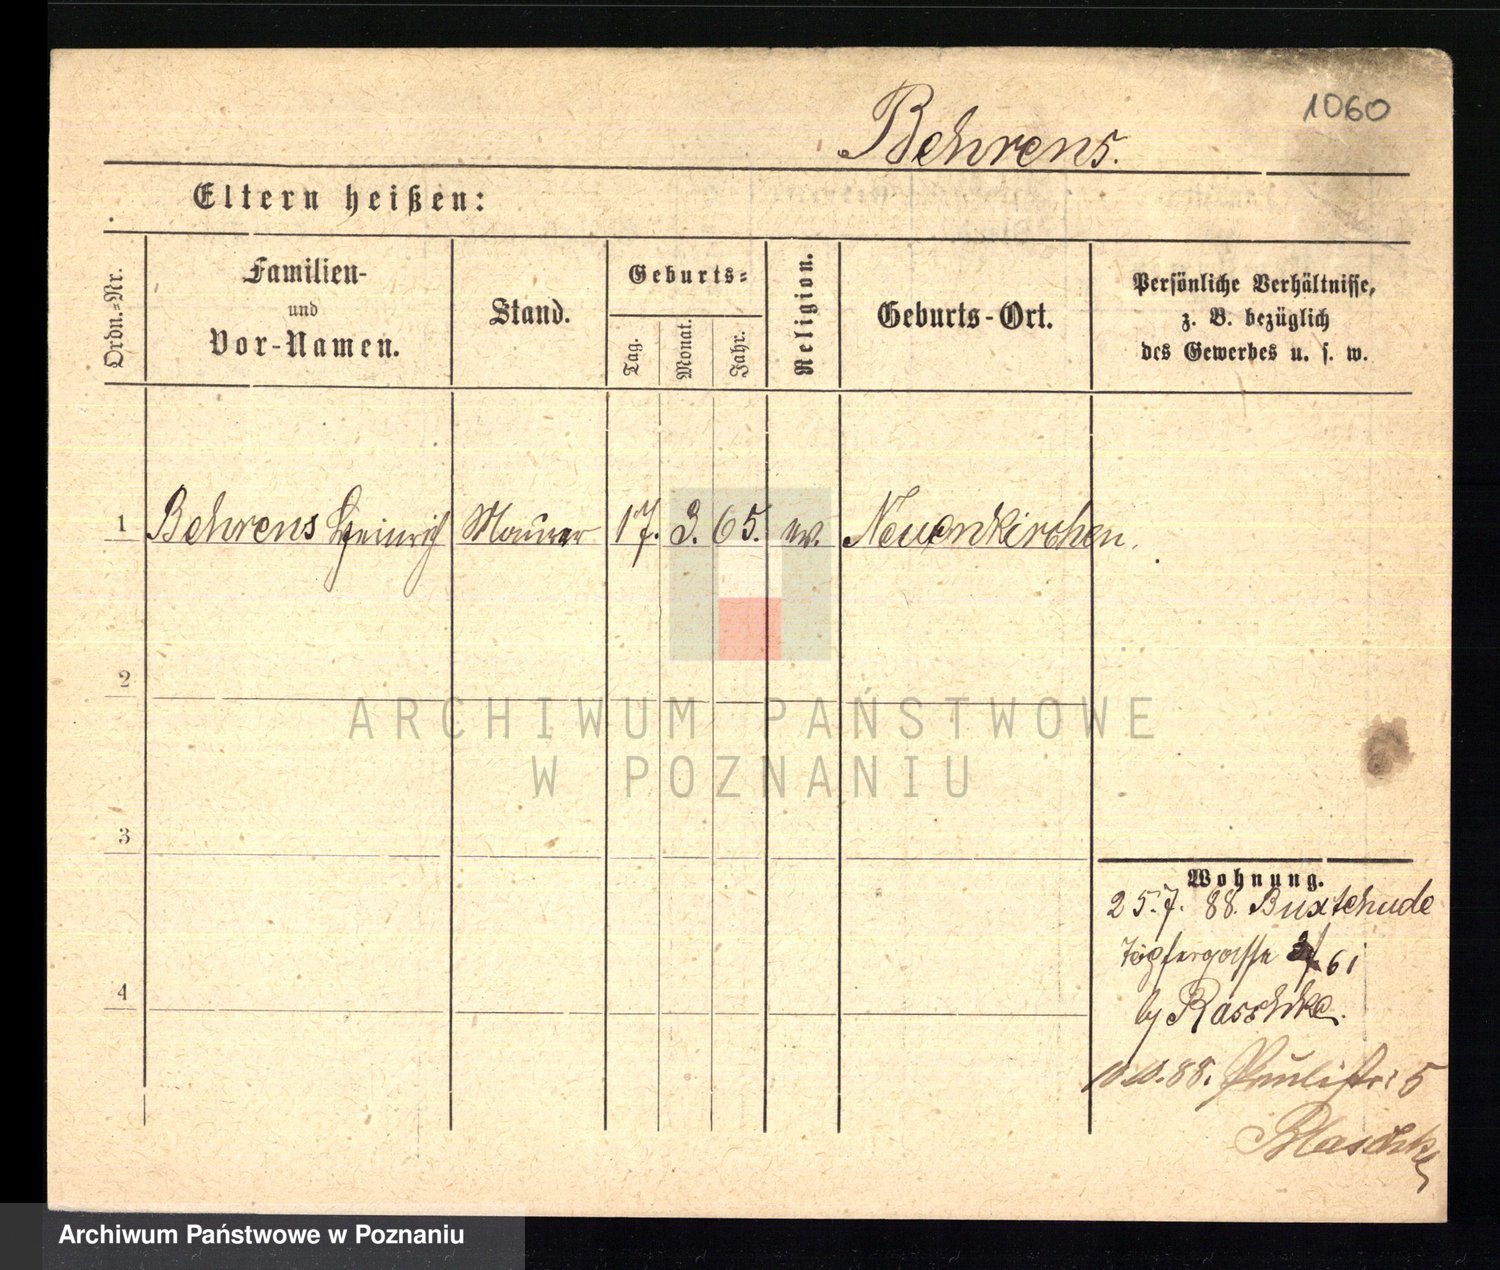 1060
Behrens.
Eltern heißen:
Ordn.-Nr.
Familien-
und
Vor-Namen.
Stand.
Geburts-
Tag.
Monat.
Jahr.
Religion.
Geburts-Ort.
Persönliche Verhältnisse,
z. B. bezüglich
des Gewerbes u. s. w.
1 Behrens Heinrich Maurer 17. 3. 65. ev. Neuenkirchen.
2
ARCHIWUM PAŃSTWOWE
W POZNANIU
3
Wohnung.
25.7. 88. Buxtehude
Töpfergasse 61
4
by Raschke.
10.10.88. Paulistr: 5
Blaschke
Archiwum Państwowe w Poznaniu